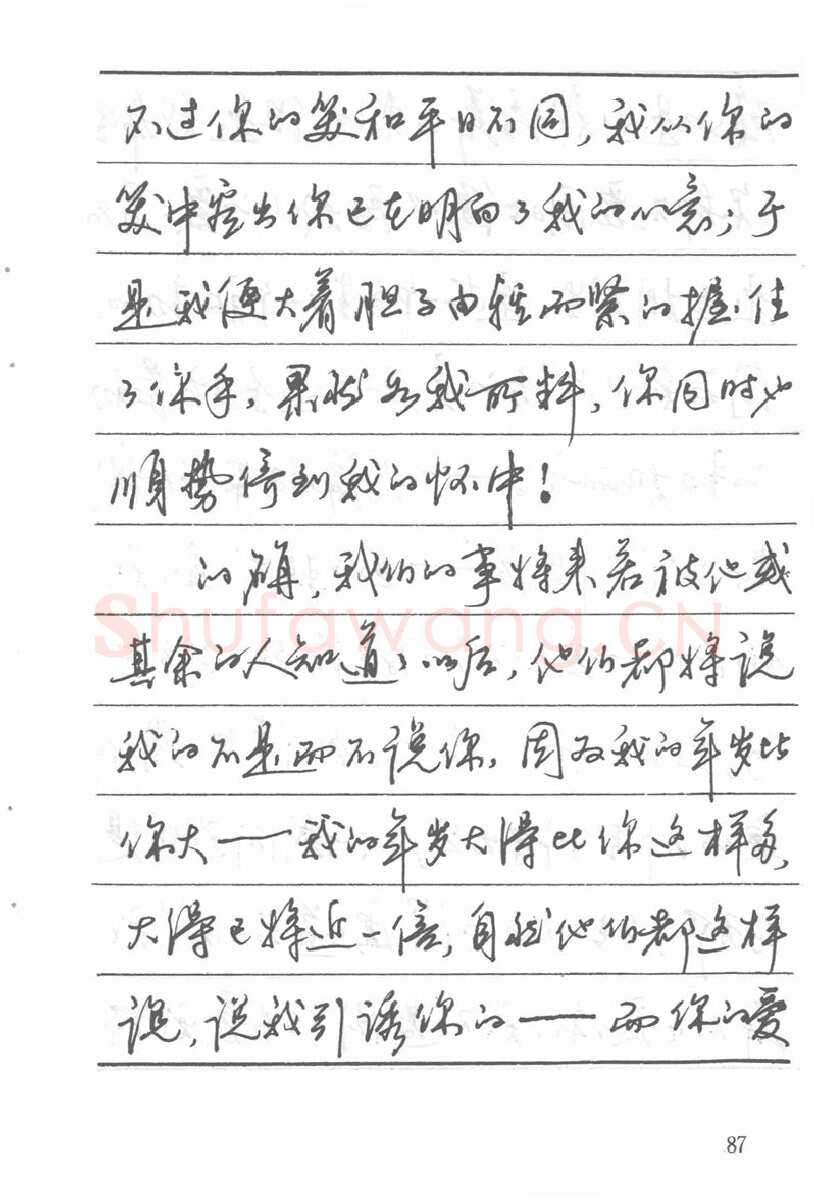 不过你的笑和平日不同，我从你的
笑中看出你已在明白了我的心意；于
是我便大着胆子由轻而紧的握住
了你手，果然如我所料，你同时也
顺势倚到我的怀中！
的确，我们的事将来若被他或
其余的人知道以后，他们都将说
我的不是而不说你，因为我的年岁比
你大——我的年岁大得比你这样多，
大得已将近一倍，自然他们都这样
说，说我引诱你的——而你的爱
87
Shufawang.CN